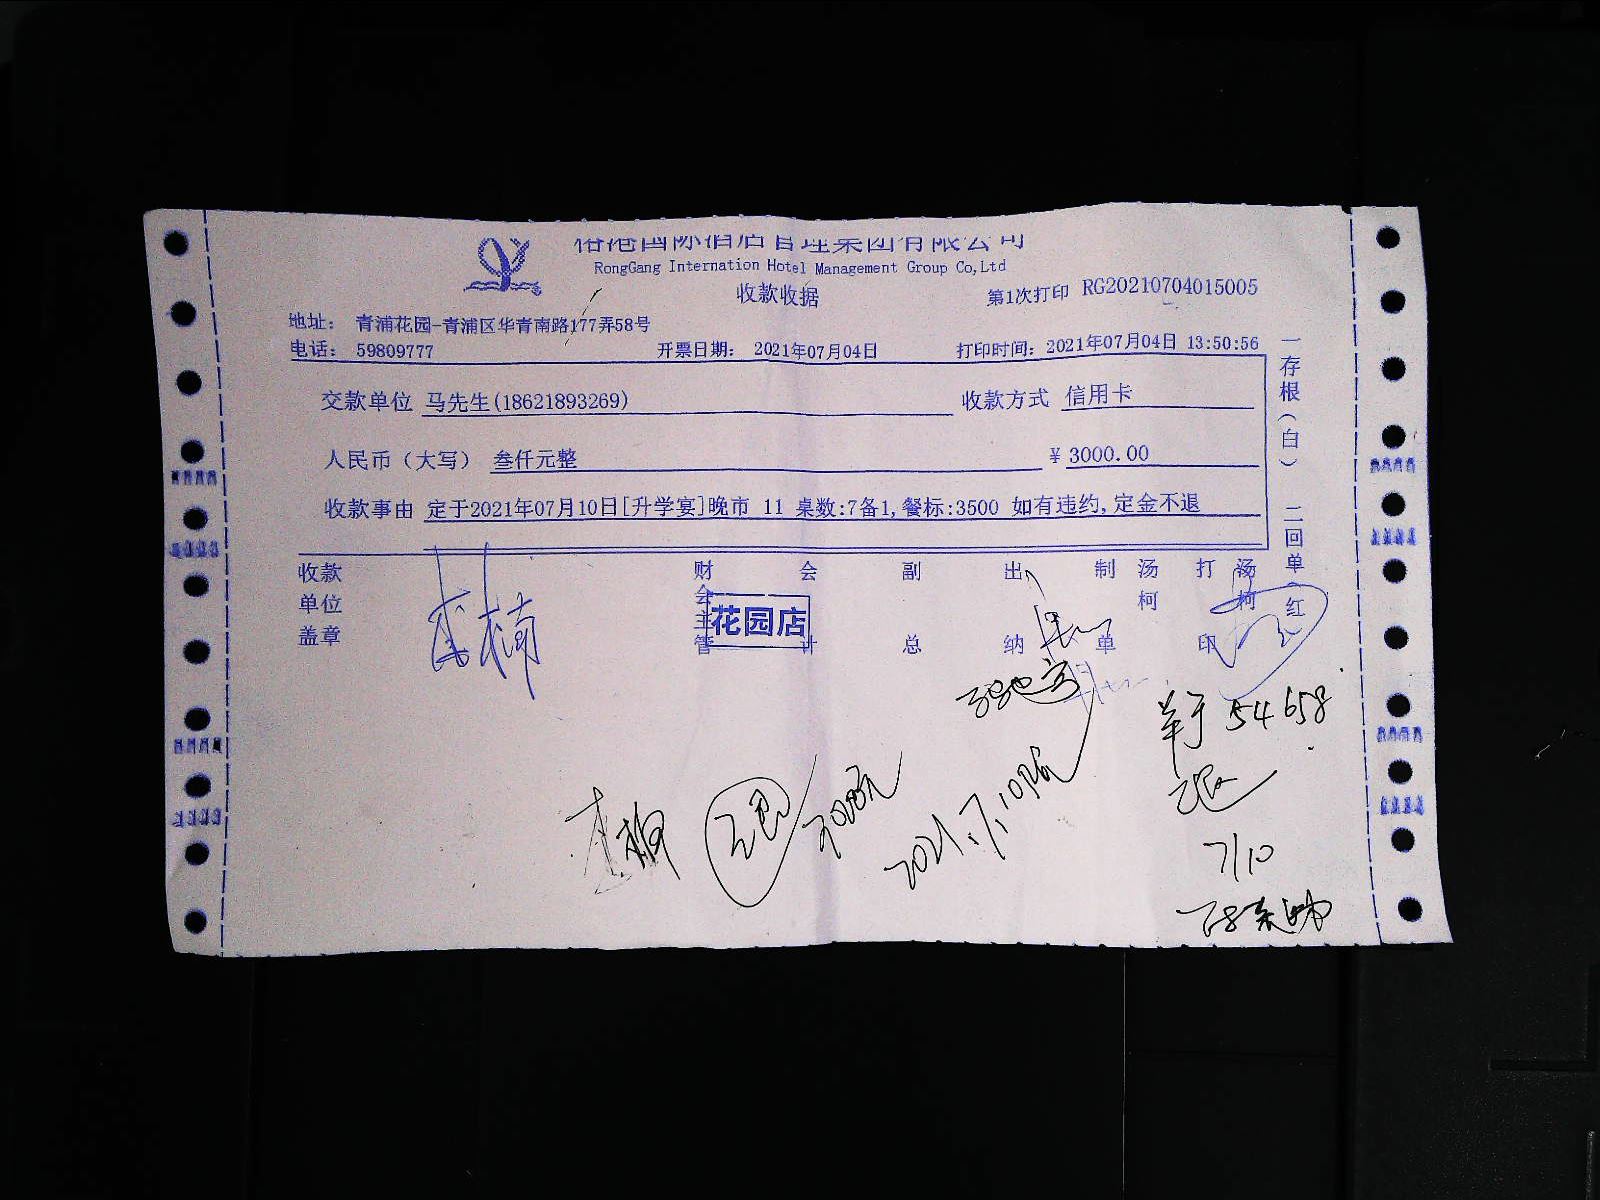 国际酒店管理集团有限公司
RongGang Internation Hotel Management Group Co,Ltd
收款收据
第1次打印 RG20210704015005
地址: 青浦花园-青浦区华青南路177弄58号
电话: 59809777 开票日期: 2021年07月04日 打印时间: 2021年07月04日 13:50:56
交款单位 马先生(18621893269) 收款方式 信用卡
人民币(大写) 叁仟元整 ¥3000.00
收款事由 定于2021年07月10日[升学宴]晚市 11 桌数:7备1,餐标:3500 如有违约,定金不退
一存根(白) 二回单(红)
收款单位盖章
财会主管
会计
副总
出纳
制单 汤柯
打印 汤柯
花园店
54658
李楠
2021.7.10
7/10